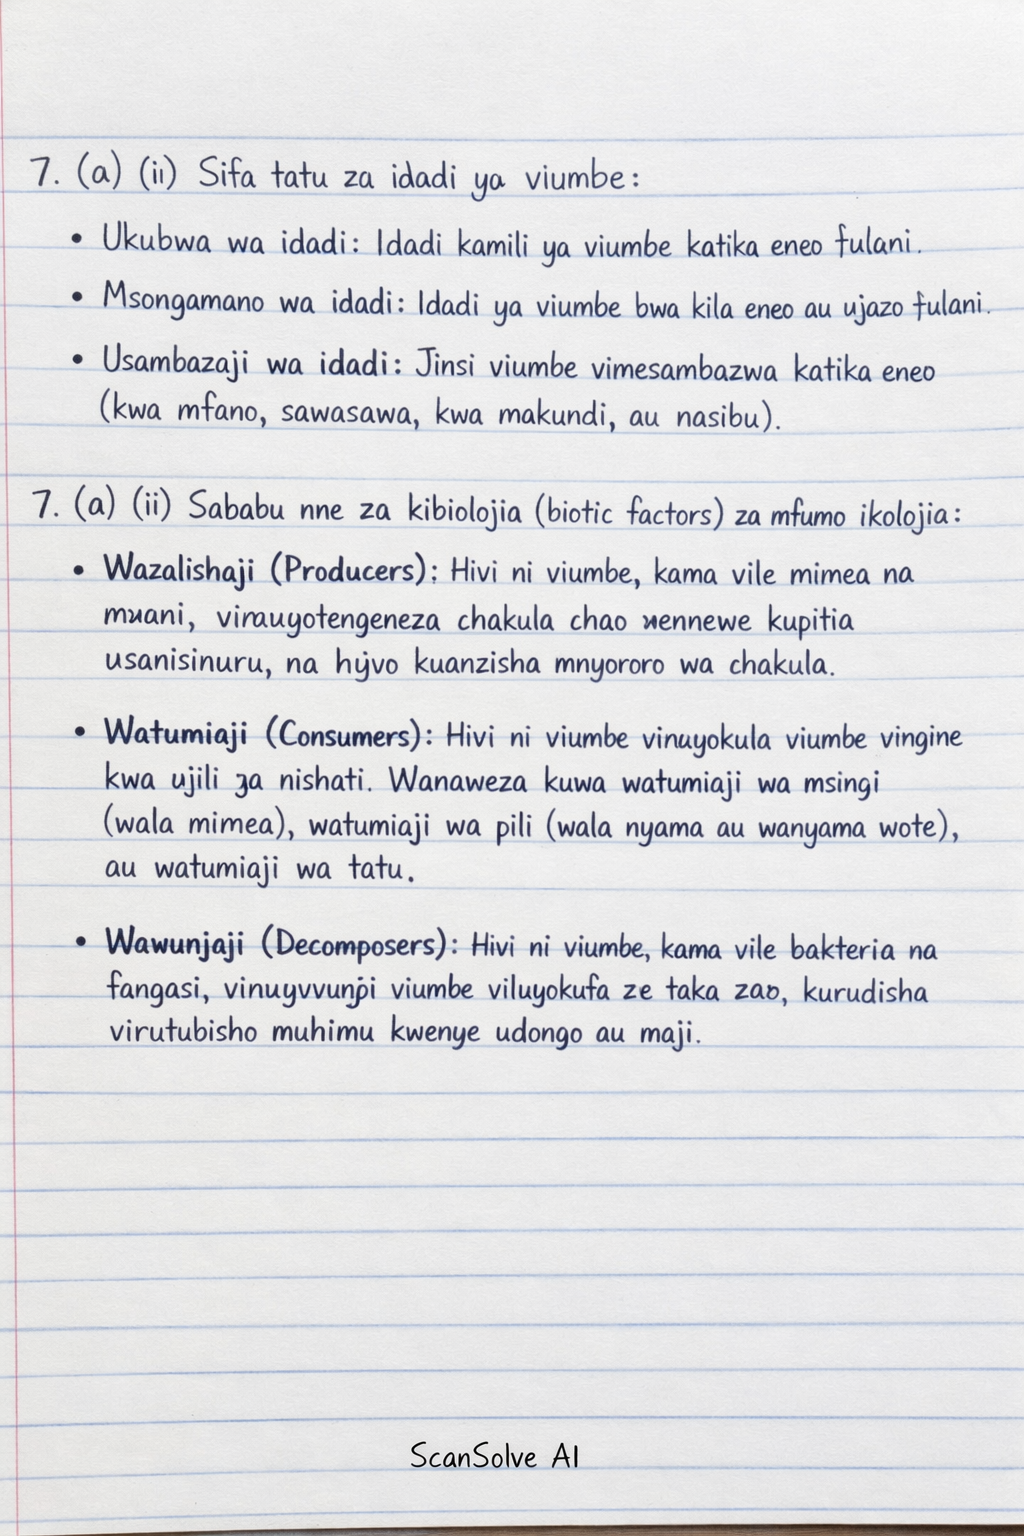 7. (a) (ii) Sifa tatu za idadi ya viumbe:
• Ukubwa wa idadi: Idadi kamili ya viumbe katika eneo fulani.
• Msongamano wa idadi: Idadi ya viumbe bwa kila eneo au ujazo fulani.
• Usambazaji wa idadi: Jinsi viumbe vimesambazwa katika eneo
(kwa mfano, sawasawa, kwa makundi, au nasibu).
7. (a) (ii) Sababu nne za kibiolojia (biotic factors) za mfumo ikolojia:
• Wazalishaji (Producers): Hivi ni viumbe, kama vile mimea na
chakula chao kupitia
usanisinuru, na kuanzisha mnyororo wa chakula.
• Watumiaji (Consumers): Hivi ni viumbe vinuyokula viumbe vingine
kwa ujili nishati. Wanaweza kuwa watumiaji wa msingi
(wala mimea), watumiaji wa pili (wala nyama au wanyama wote),
au watumiaji wa tatu.
• Wawunjaji (Decomposers): Hivi ni viumbe, kama vile bakteria na
fangasi, viumbe viluyokufa ze taka zao, kurudisha
virutubisho muhimu kwenye udongo au maji.
ScanSolve AI